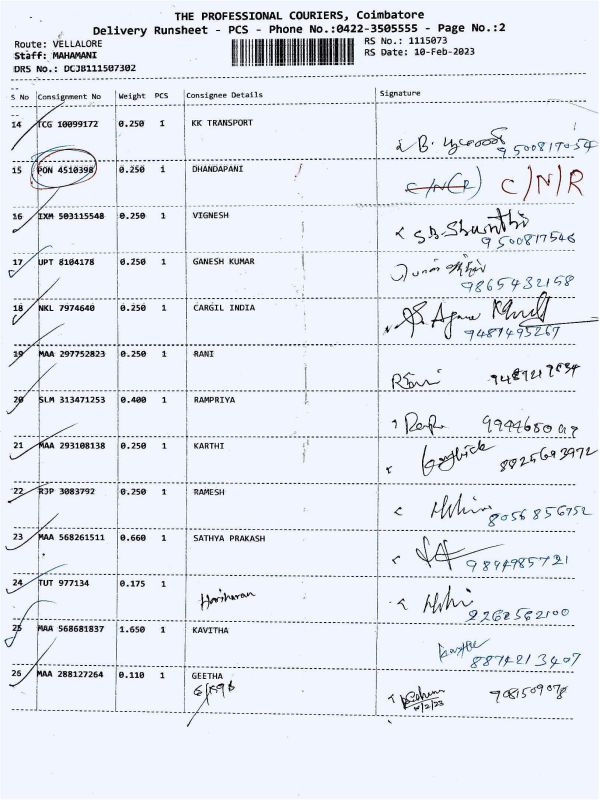 THE PROFESSIONAL COURIERS, Coimbatore
Delivery Runsheet - PCS - Phone No.:0422-3505555 - Page No.:2
Route: VELLALORE RS No.: 1115073
Staff: MAHAMANI RS Date: 10-Feb-2023
DRS No.: DCJB111507302
S No Consignment No Weight PCS Consignee Details Signature
14 TCG 10099172 0.250 1 KK TRANSPORT
B. 9500817054
15 PON 4510398 0.250 1 DHANDAPANI C/N(R) C/N/R
16 IXM 503115548 0.250 1 VIGNESH
S.B. Shanthi
9500817546
17 UPT 8104178 0.250 1 GANESH KUMAR
9865432158
18 NKL 7974640 0.250 1 CARGIL INDIA
9487495267
19 MAA 297752823 0.250 1 RANI
Rani
20 SLM 313471253 0.400 1 RAMPRIYA
21 MAA 293108138 0.250 1 KARTHI
8825693972
22 RJP 3083792 0.250 1 RAMESH
8056856752
23 MAA 568261511 0.660 1 SATHYA PRAKASH
9894985721
24 TUT 977134 0.175 1
Hariharan
2262562100
25 MAA 568681837 1.650 1 KAVITHA
8874213407
26 MAA 288127264 0.110 1 GEETHA
9081509078